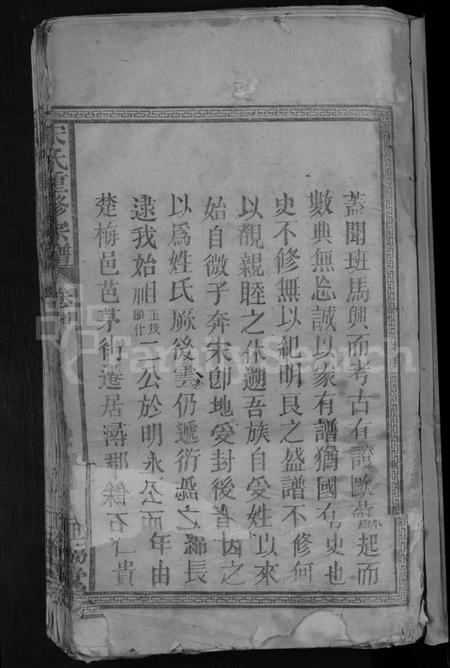 蓋聞班馬興而考古有證歐蘇起而
數典無忘誠以家有譜猶國有史也
史不修無以紀明良之盛譜不修何
以覩親睦之休遡吾族自受姓以來
始自微子奔宋卽地受封後者因之
以爲姓氏厥後雲仍遞衍瓞之綿長
逮我始祖玉茂顯什二公於明永公而年由
楚梅邑芭茅街遷居潯郡餘石仁貴
宋氏重修宗譜
卷首
FamilySearch